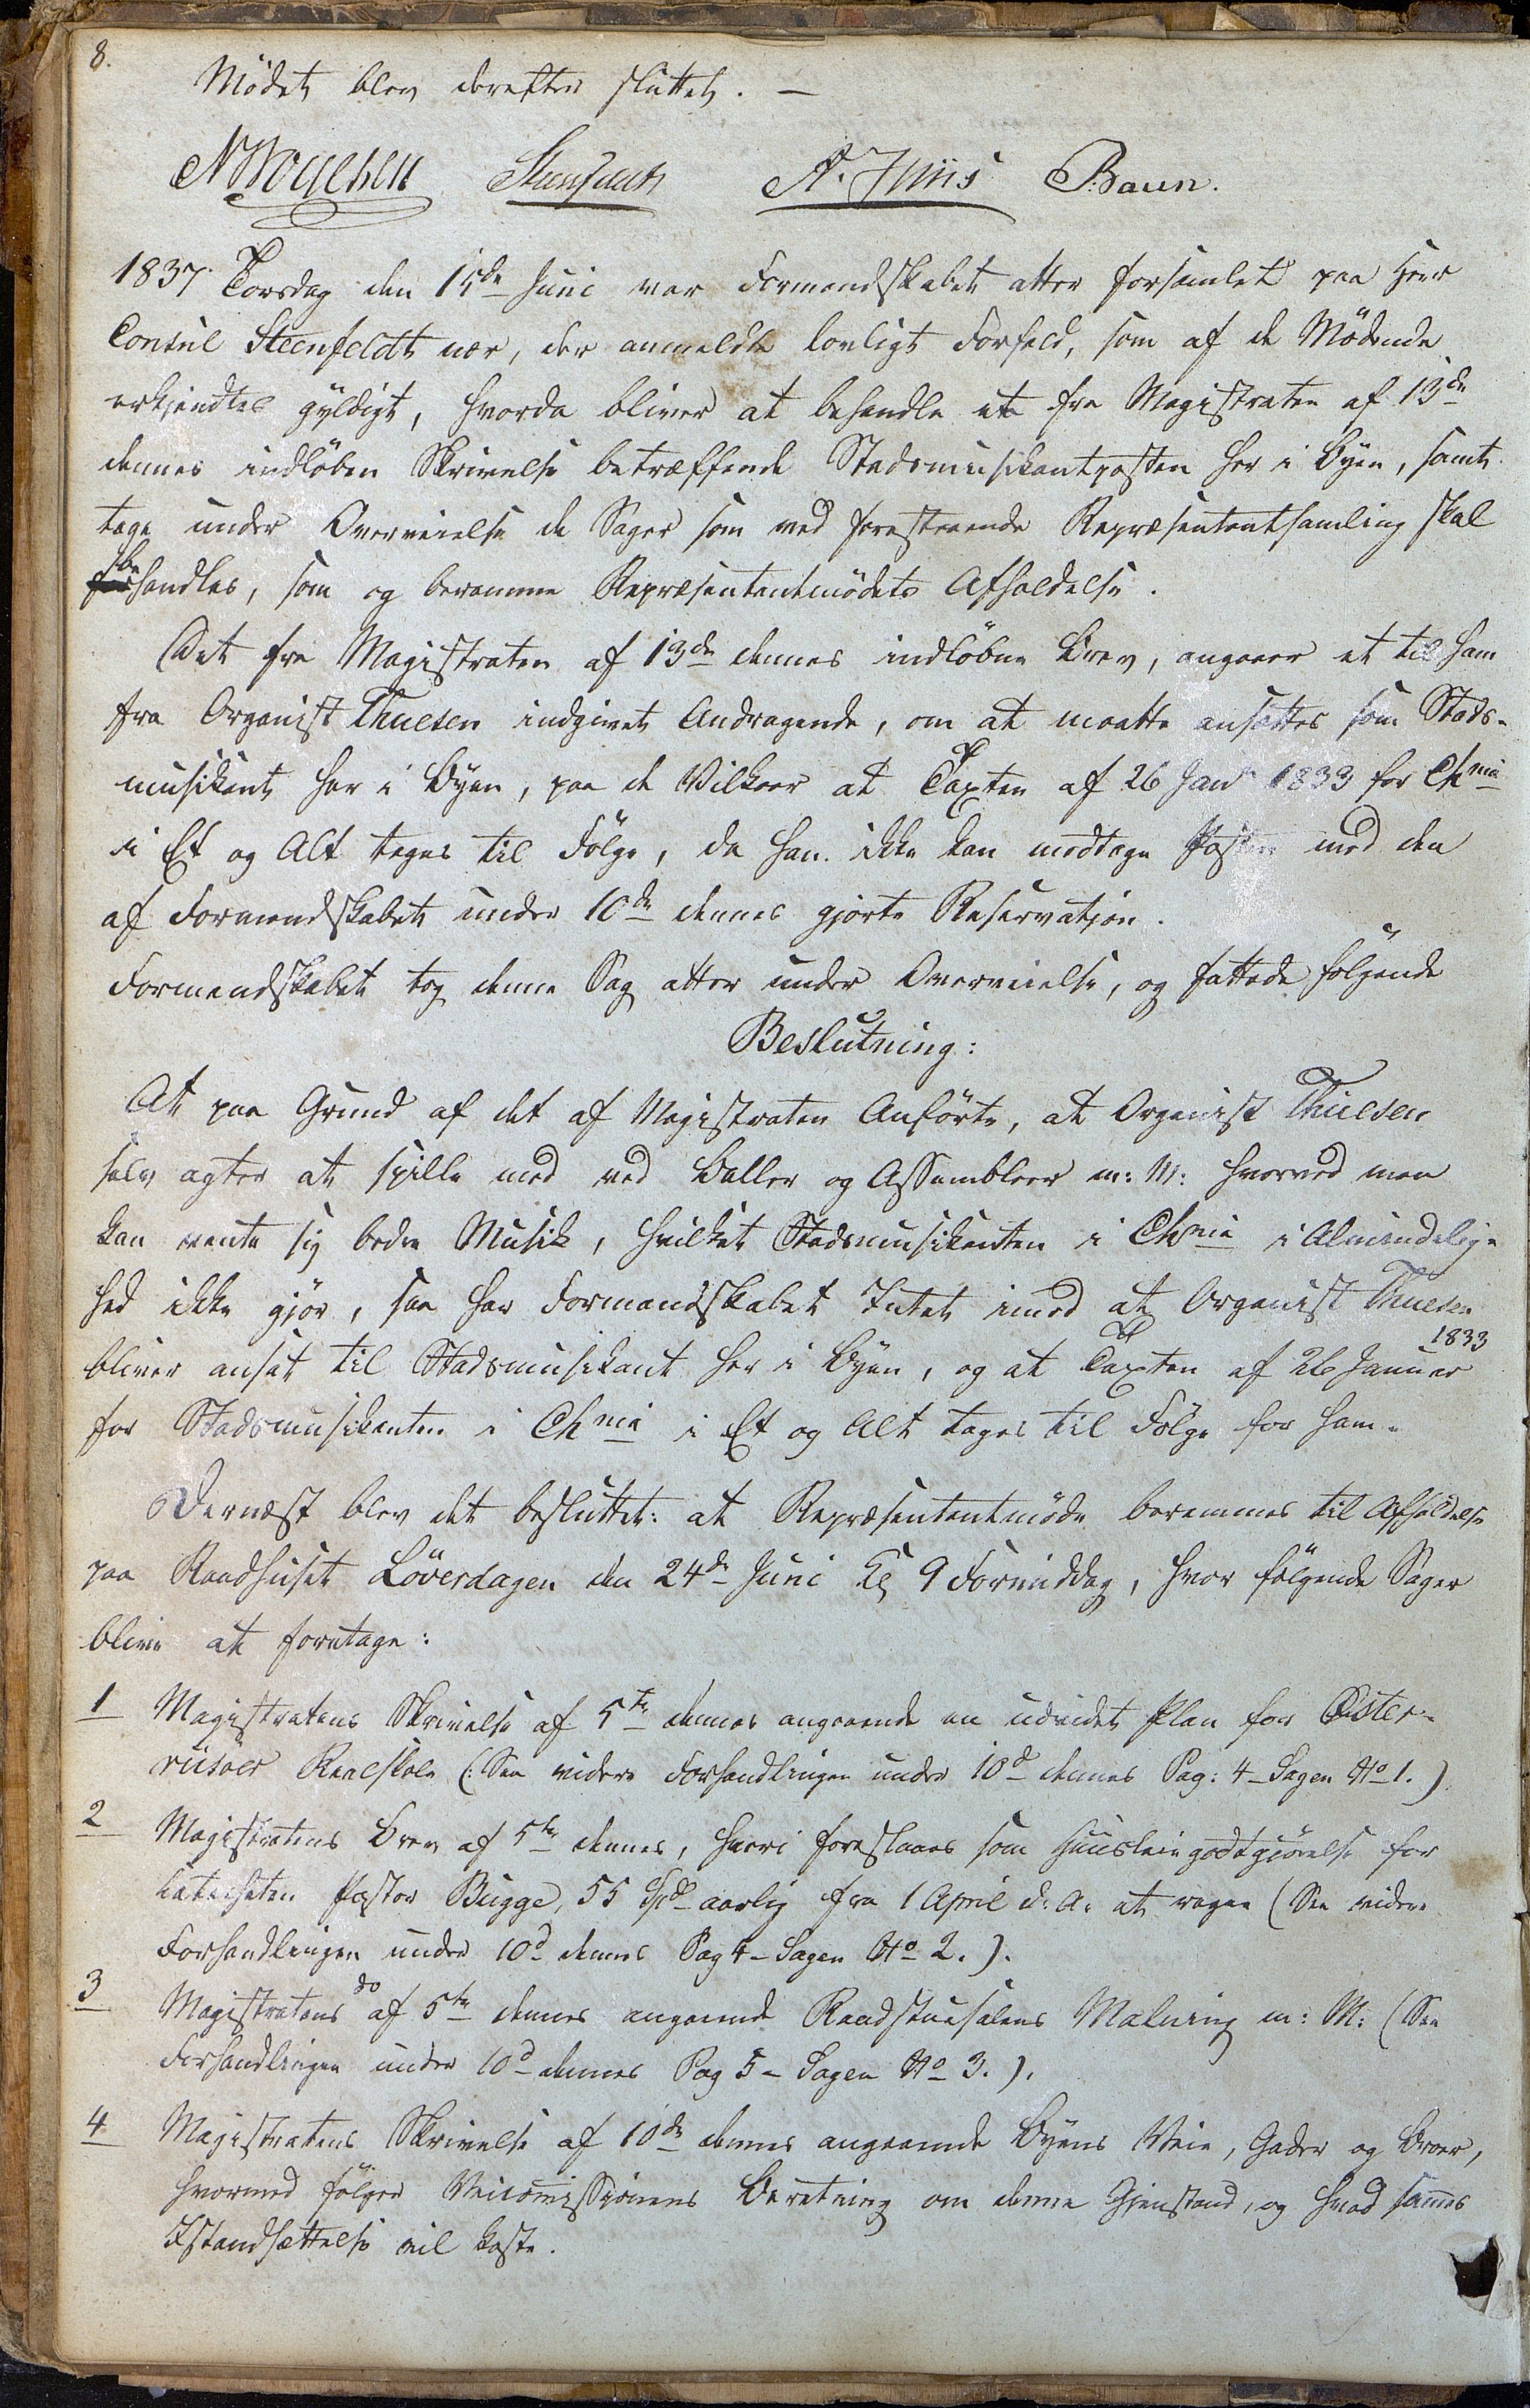 8.
Mödet blev derefter sluttet. —
Steenfeldt A. Juiis Baun.
1837. Torsdag den 15de Juni var Formandskabet atter forsamlet paa Herr
Consul Steenfeldt nær, der anmeldte lovligt Forfald, som af de Mödende
erkjendtes gyldigt, hvorda bliver at behandle et fra Magistraten af 13de
dennes indlöben Skrivelse betræffende Stadsmusikantposten her i Byen, samt
tage under Overveielse de Sager som ved forestaaende Repræsentantsamling skal
behandles, som og beramme Repræsentantmödets Afholdelse.
Det fra Magistraten af 13de dennes indlöbne Brev, angaaer et til ham
fra Organist Thuesen indgivet Andragende, om at maatte ansættes som Stads-
musikant her i Byen, paa de Vilkaar at Taxten af 26 Janr 1833 for Chnia
i Et og Alt tages til Fölge, da han ikke kan modtage Posten med den
af Formandskabet under 10de dennes gjorte Reservation.
Formandskabet tog denne Sag atter under Overveielse, og fattede fölgende
Beslutning:
At paa Grund af det af Magistraten Anförte, at Organist Thuesen
selv agter at spille med ved Baller og Assembleer m: M: hvorved man
kan vente sig bedre Musik, hvilket Stadsmusikanten i Chnia i Almindelig-
hed ikke gjör, saa har Formandskabet Intet imod at Organist Thuesen
bliver ansat til Stadsmusikant her i Byen, og at Taxten af 26 Januar 1833
for Stadsmusikanten i Chnia i Et og Alt tages til Fölge for ham.
Dernæst blev det besluttet: at Repræsentantmöde berammes til Afholdelse
paa Raadhuset Löverdagen den 24de Juni Kl 9 Formiddag, hvor fölgende Sager
blive at foretage:
1 Magistratens Skrivelse af 5te dennes angaaende en udvidet Plan for Öster-
riisöer Realskole (: See videre Forhandlingen under 10d dennes Pag: 4 - Sagen No 1.)
2 Magistratens Brev af 5te dennes, hvori foreslaaes som Huusleiegodtgjörelse for
Katecheten Pastor Bugge, 55 Spd aarlig fra 1 April d: A: at regne (See videre
Forhandlingen under 10d dennes Pag 4 - Sagen No 2.).
3 Magistratens do af 5te dennes angaaende Raadstuesalens Malning m: M: (See
Forhandlingen under 10d dennes Pag 5 - Sagen No 3.).
4 Magistratens Skrivelse af 10de dennes angaaende Byens Veie, Gader og Broer,
hvormed fölger Veicomissionens Beretning om denne Gjenstand, og hvad sammes
Istandsættelse vil koste.